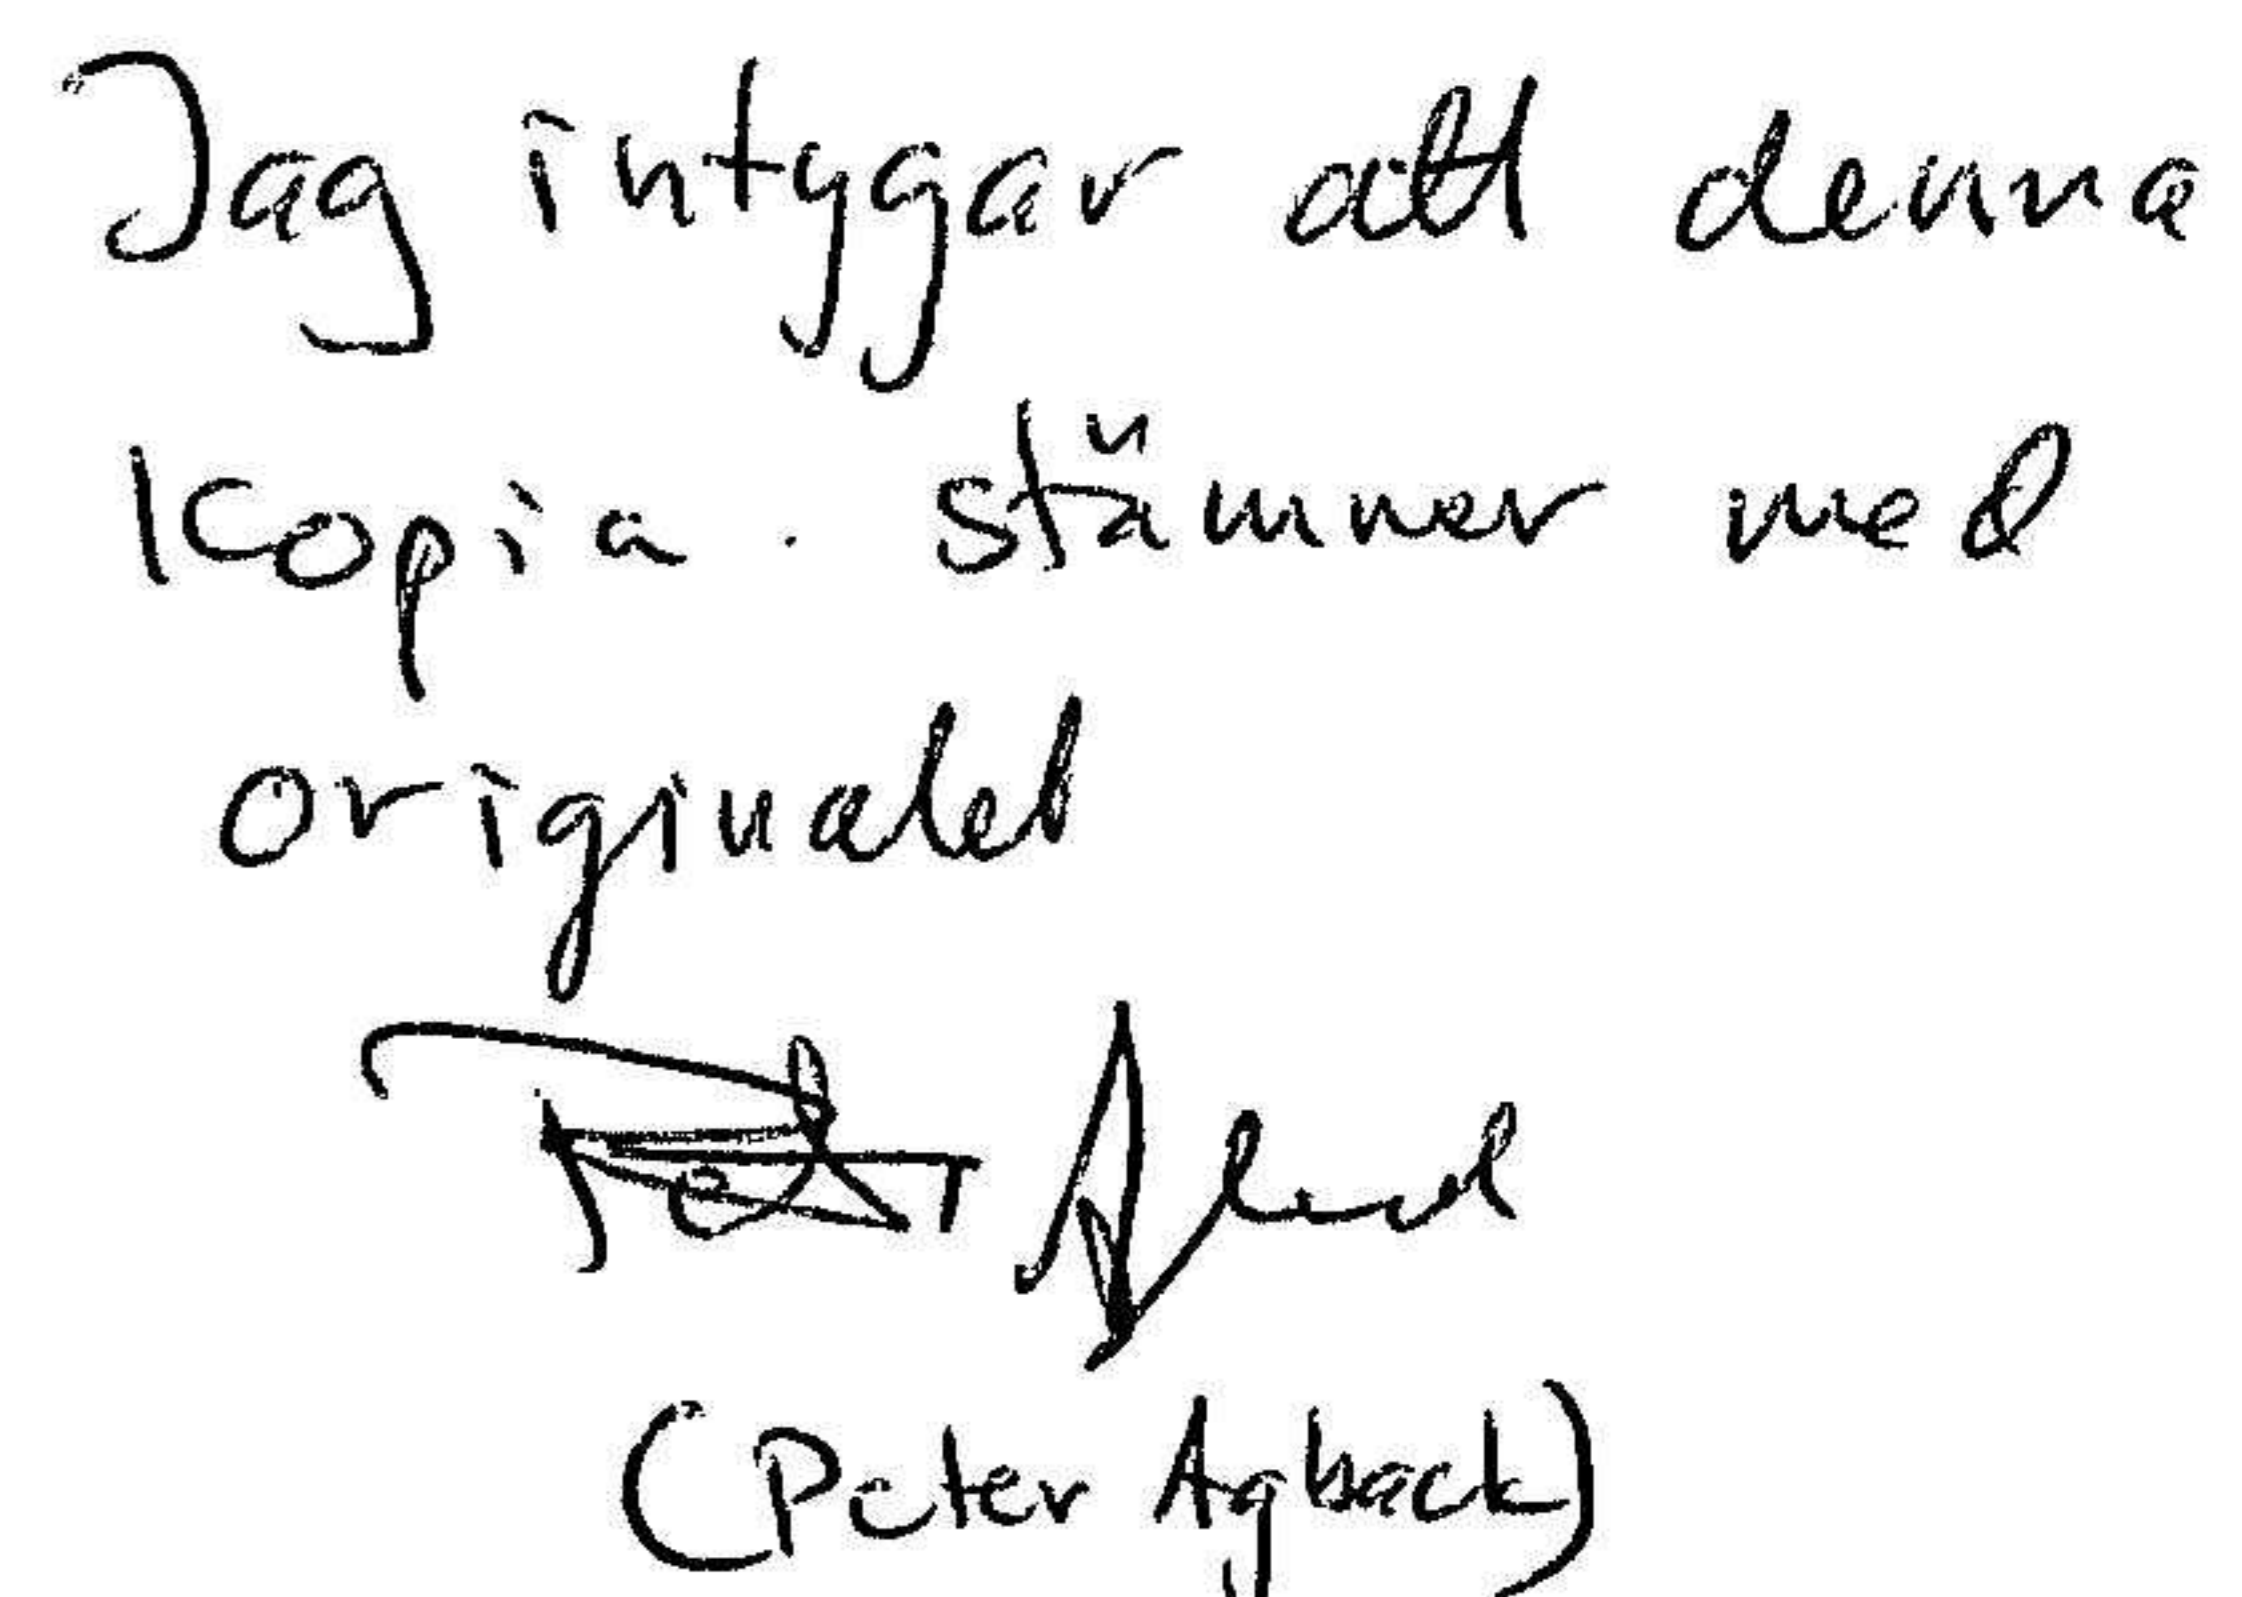 Jag intygar att denna
kopia stämmer med
originalet
(Peter Agback)